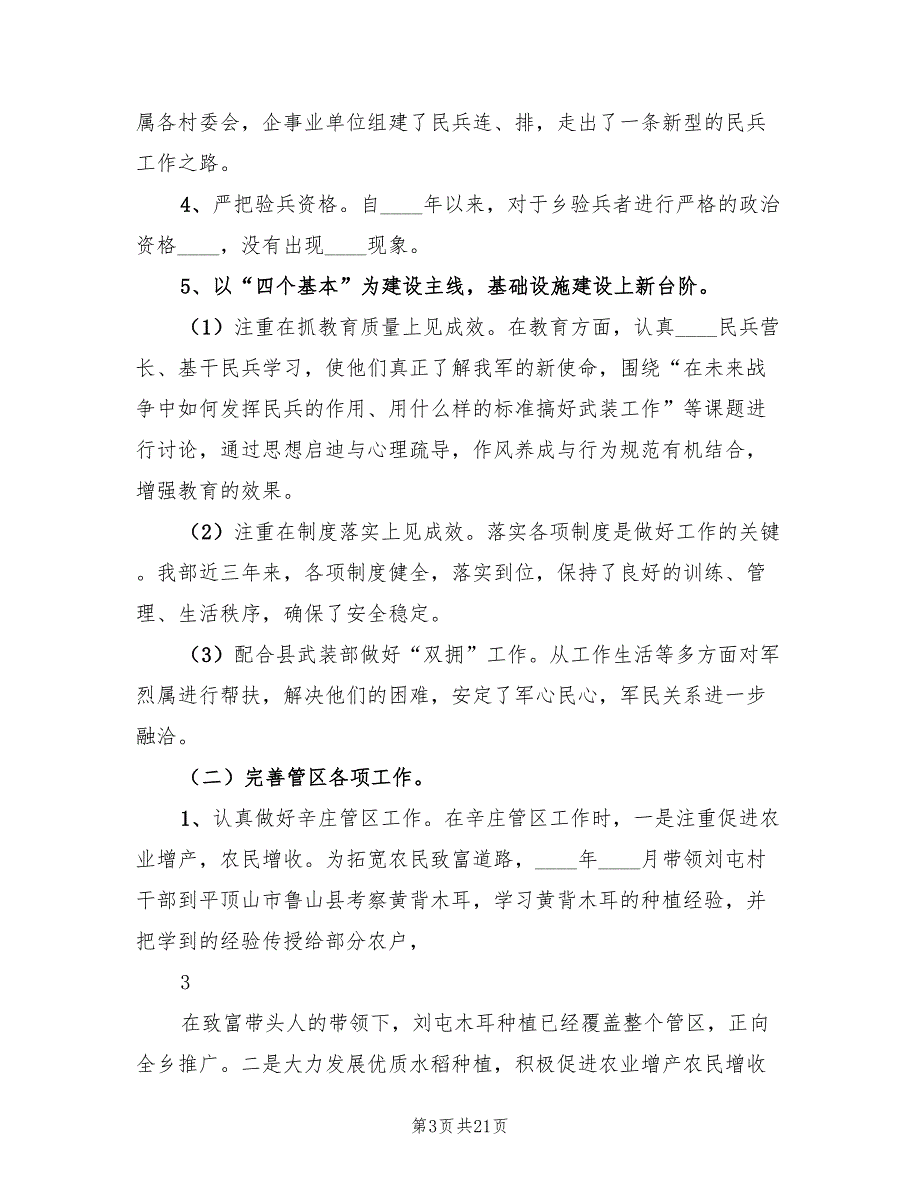 属各村委会，企事业单位组建了民兵连、排，走出了一条新型的民兵
工作之路。
4、严把验兵资格。自____年以来，对于乡验兵者进行严格的政治
资格____，没有出现____现象。
5、以“四个基本”为建设主线，基础设施建设上新台阶。
（1）注重在抓教育质量上见成效。在教育方面，认真____民兵营
长、基干民兵学习，使他们真正了解我军的新使命，围绕“在未来战
争中如何发挥民兵的作用、用什么样的标准搞好武装工作”等课题进
行讨论，通过思想启迪与心理疏导，作风养成与行为规范有机结合，
增强教育的效果。
（2）注重在制度落实上见成效。落实各项制度是做好工作的关键
。我部近三年来，各项制度健全，落实到位，保持了良好的训练、管
理、生活秩序，确保了安全稳定。
（3）配合县武装部做好“双拥”工作。从工作生活等多方面对军
烈属进行帮扶，解决他们的困难，安定了军心民心，军民关系进一步
融洽。
（二）完善管区各项工作。
1、认真做好辛庄管区工作。在辛庄管区工作时，一是注重促进农
业增产，农民增收。为拓宽农民致富道路，____年____月带领刘屯村
干部到平顶山市鲁山县考察黄背木耳，学习黄背木耳的种植经验，并
把学到的经验传授给部分农户，
3
在致富带头人的带领下，刘屯木耳种植已经覆盖整个管区，正向
全乡推广。二是大力发展优质水稻种植，积极促进农业增产农民增收
第3页共21页